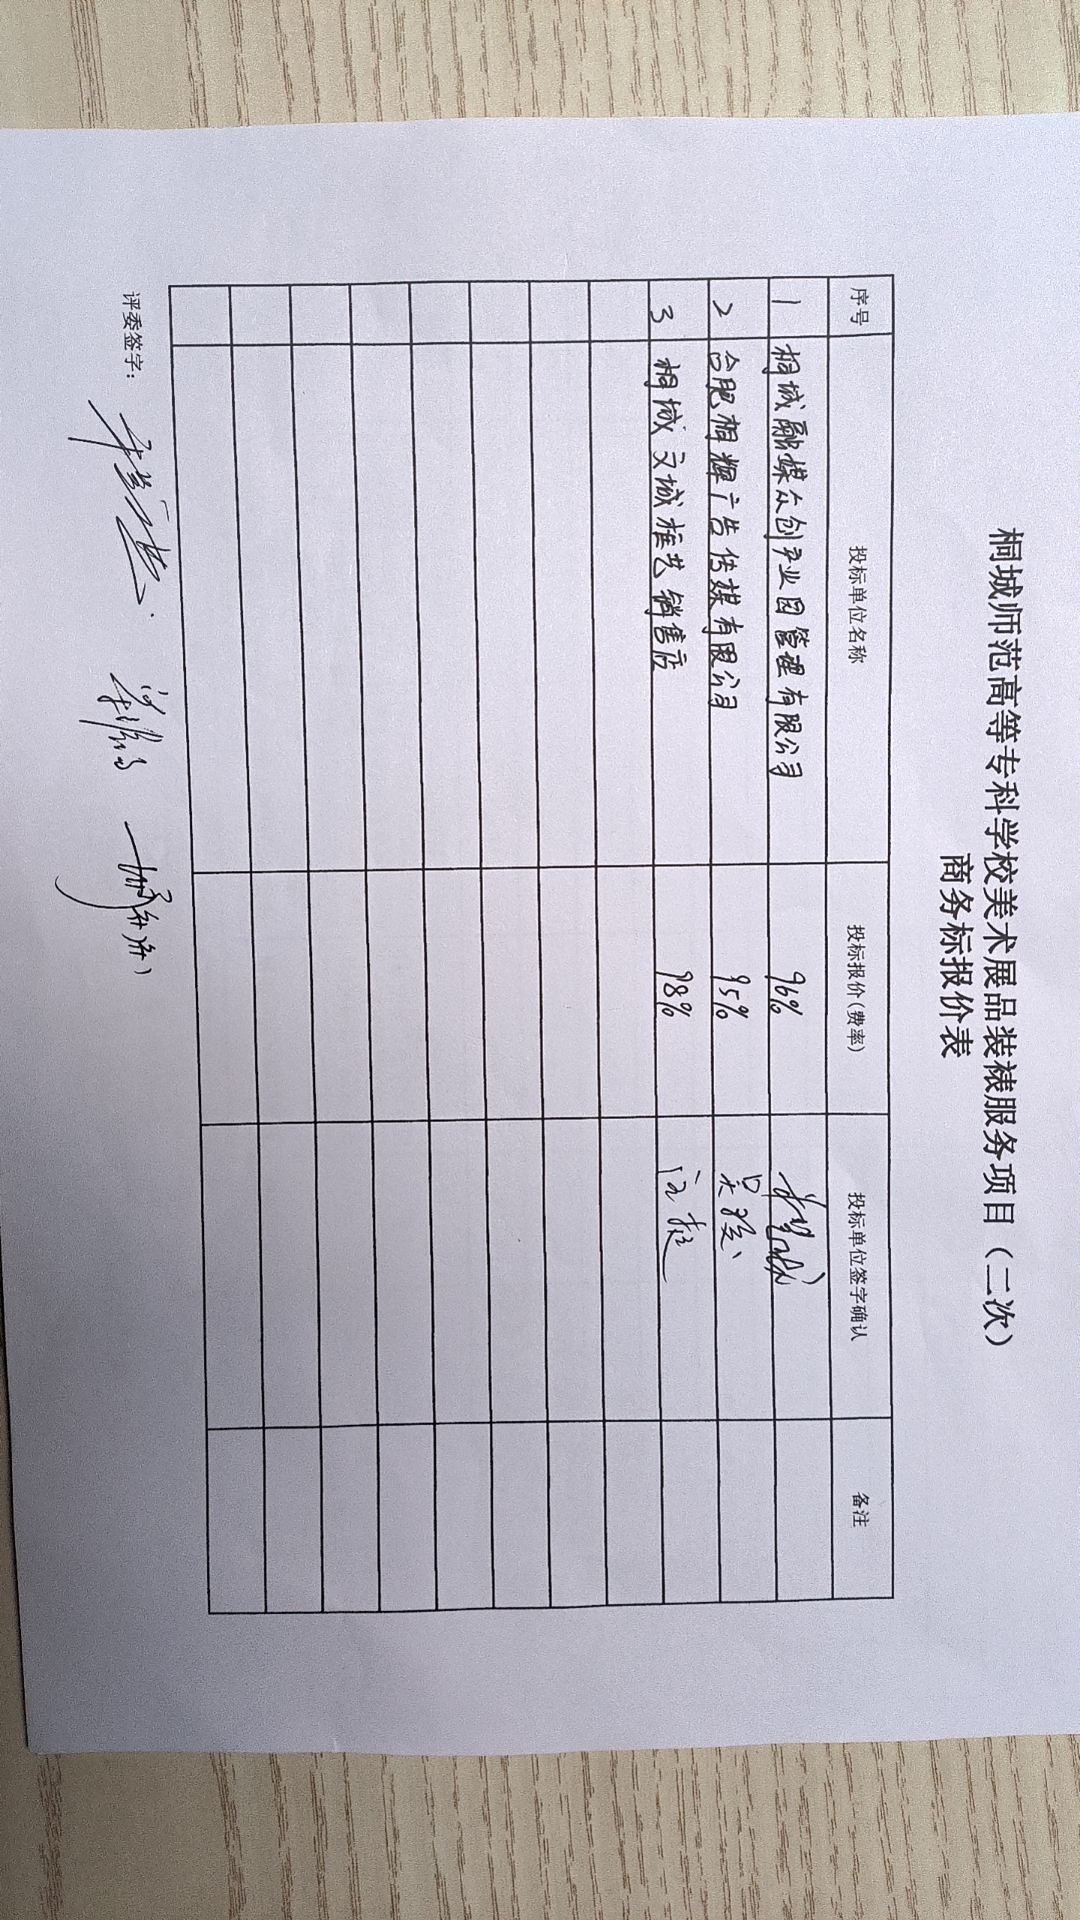 桐城师范高等专科学校美术展品装裱服务项目（二次）
商务标报价表
序号 投标单位名称 投标报价（费率） 投标单位签字确认 备注
1 桐城融媒众创产业园管理有限公司 96%
2 合肥桐辉广告传媒有限公司 95%
3 桐城文城框艺销售店 98%
评委签字：